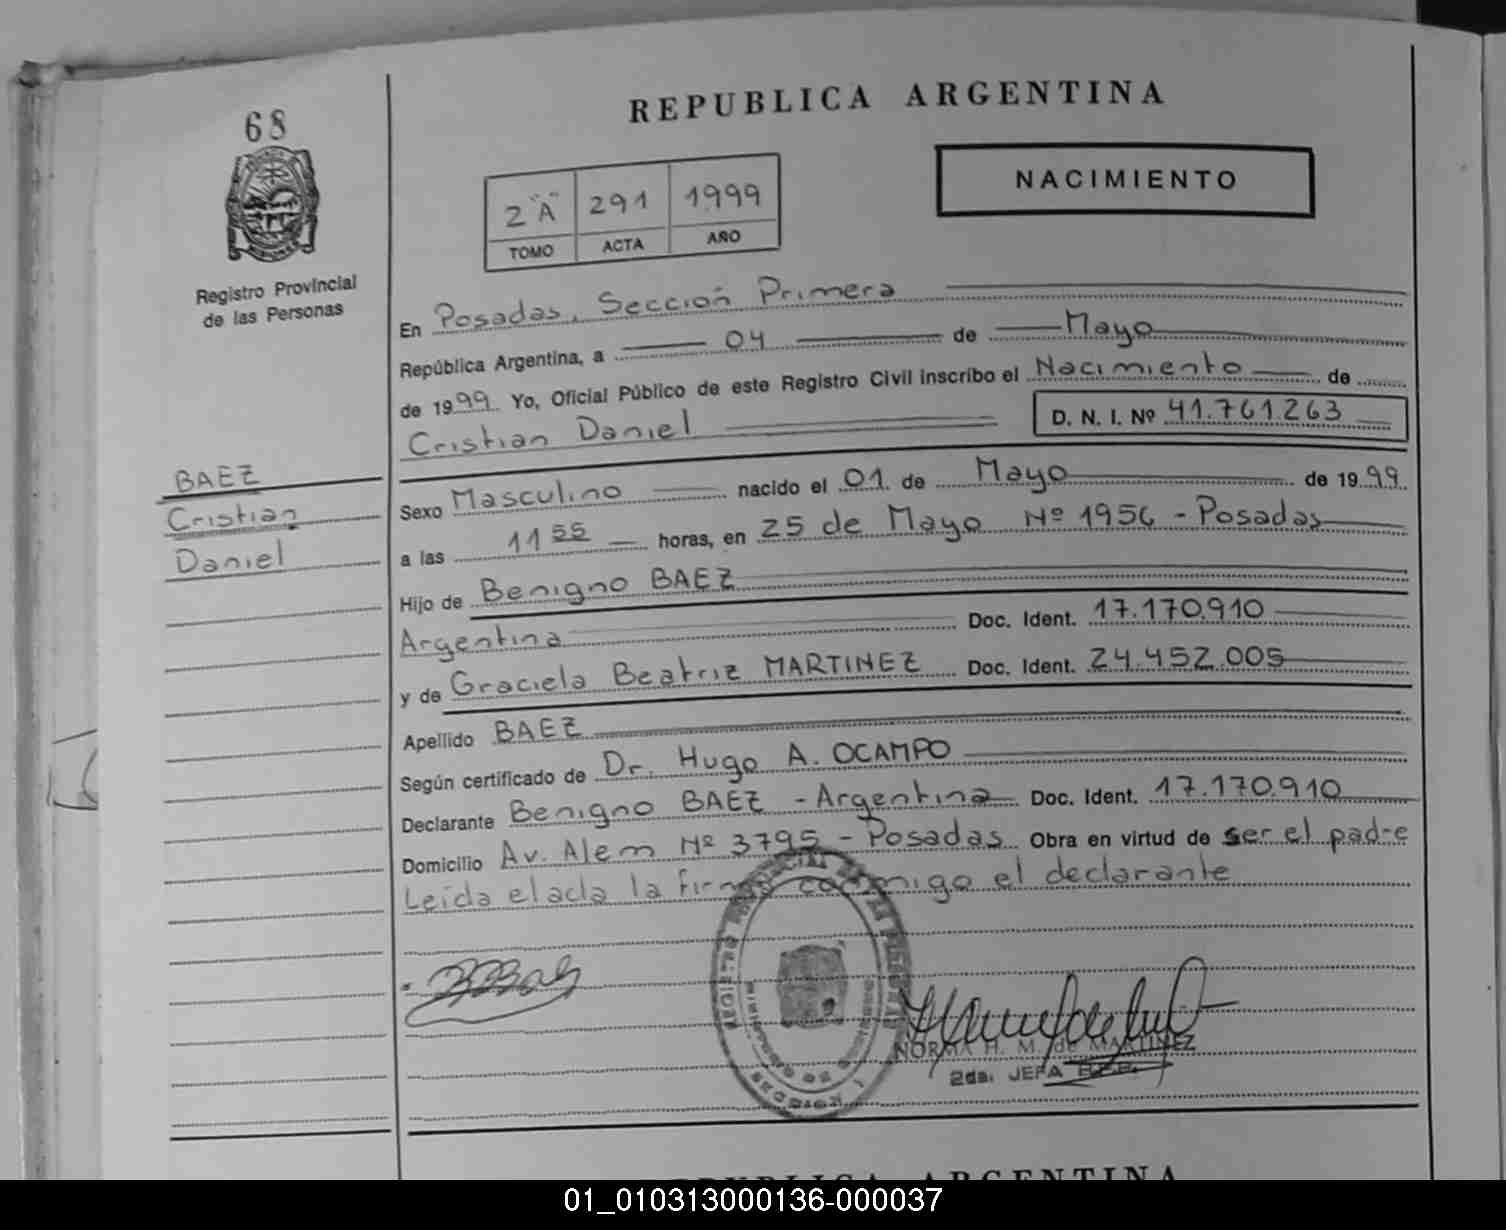 68
REPUBLICA ARGENTINA
NACIMIENTO
2 "A" 291 1999
TOMO ACTA AÑO
Registro Provincial
de las Personas
En Posadas, Sección Primera
República Argentina, a 04 de Mayo
de 1999 Yo, Oficial Público de este Registro Civil inscribo el Nacimiento de
Cristian Daniel D. N. I. Nº 41.761.263
BAEZ
Cristian
Daniel
Sexo Masculino nacido el 01 de Mayo de 1999
a las 11 55 horas, en 25 de Mayo Nº 1956 - Posadas
Hijo de Benigno BAEZ
Argentina Doc. Ident. 17.170.910
y de Graciela Beatriz MARTINEZ Doc. Ident. 24.452.005
Apellido BAEZ
Según certificado de Dr. Hugo A. OCAMPO
Declarante Benigno BAEZ - Argentina Doc. Ident. 17.170.910
Domicilio Av. Alem Nº 3795 - Posadas Obra en virtud de ser el padre
Leída el acta la firma conmigo el declarante
NORMA H. M. de MARTINEZ
2da. JEFA
SECCION 1
REPUBLICA ARGENTINA
01_010313000136-000037